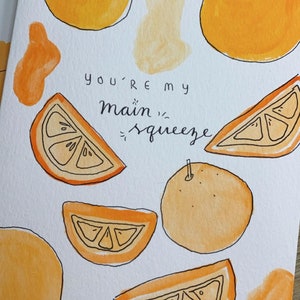 YOU'RE MY
main
squeeze